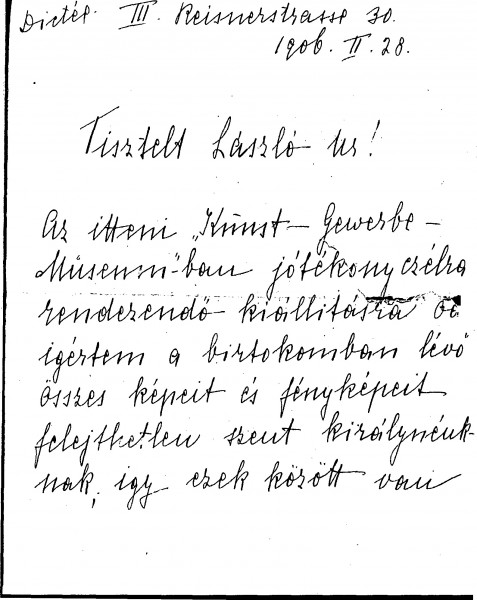 Dictée. III. Reisnerstrasse 30.
1906. II. 28.
Tisztelt László Ur!
Az itteni „Kunst - Gewerbe -
Museum"-ban jótékony czélra
rendezendő kiállitásra be
igértem a birtokomban lévő
összes képeit és fényképeit
felejthetlen szent királynénk-
nak, igy ezek között van